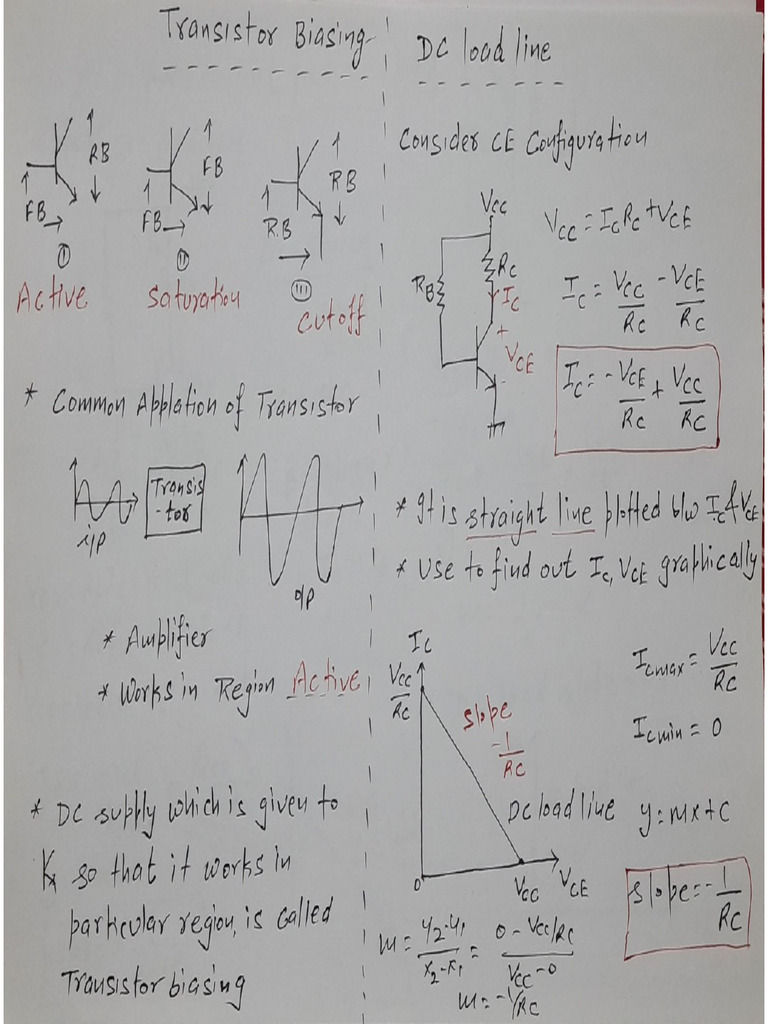 Transistor Biasing
RB
FB
I
Active
FB
FB
II
Saturation
RB
R.B
III
Cutoff
* Common Applation of Transistor
i/p
Transis
-tor
o/p
* Amplifier
* Works in Region Active
* DC supply which is given to
so that it works in
particular region, is called
Transistor biasing
DC load line
Consider CE Configuration
VCC
RB
RC
IC
+
VCE
-
VCC = IC RC + VCE
IC = VCC/RC - VCE/RC
IC = -VCE/RC + VCC/RC
* It is straight line plotted b/w IC & VCE
* Use to find out IC, VCE graphically
IC
VCC/RC
slope
-1/RC
0
VCC
VCE
DC load line
ICmax = VCC/RC
ICmin = 0
y = mx + c
slope = -1/RC
m = y2-y1/x2-x1 = 0 - VCC/RC / VCC - 0
m = -1/RC